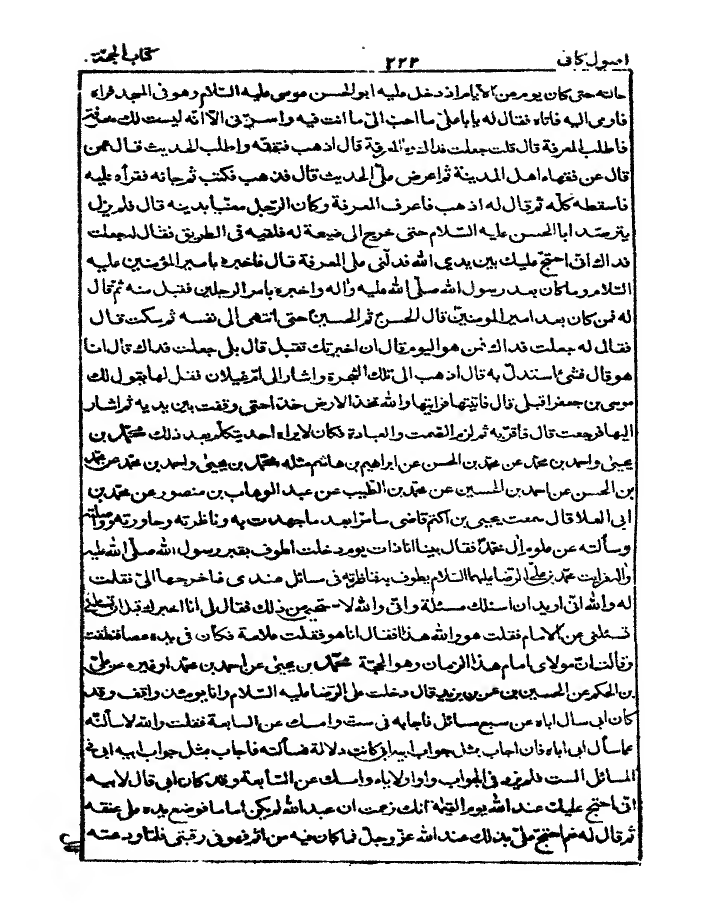 اصول كافى ٢٢٣ كتاب الحجّة
حاله حتى كان يوم من الايام اذ دخل عليه ابوالحسن موسى عليه السّلام وهو فى المسجد فراه
فاومى اليه فاتاه فقال له يا با على ما احب الىّ ما انت فيه واسرّنى الّا انّه ليست لك معرفة
فاطلب المعرفة قال قلت جعلت فداك وما المعرفة قال اذهب فتفقّه واطلب الحديث قال عمن
قال عن فقهاء اهل المدينة ثم اعرض علىّ الحديث قال فذهب فكتب ثم جائه فقرأه عليه
فاسقطه كلّه ثم قال له اذهب فاعرف المعرفة وكان الرّجل معنيّا بدينه قال فلم يزل
يترصّد ابا الحسن عليه السّلام حتى خرج الى ضيعة له فلقيه فى الطريق فقال له جعلت
فداك انّى احتجّ عليك بين يدى الله فدلّنى على المعرفة قال فاخبره بامير المؤمنين عليه
السّلام وما كان بعد رسول الله صلّى الله عليه واله واخبره بامر الرجلين فقبل منه ثم قال
له فمن كان بعد امير المومنين قال الحسن ثم الحسين حتى انتهى الى نفسه ثم سكت قال
فقال له جعلت فداك فمن هو اليوم قال ان اخبرتك تقبل قال بلى جعلت فداك قال انا
هو قال فشئ استدلّ به قال اذهب الى تلك الشجرة واشار الى ام غيلان فقل لها يقول لك
موسى بن جعفر اقبلى قال فاتيتها فرايتها والله تخدّ الارض خدّا حتى وقفت بين يديه ثم اشار
اليها فرجعت قال فاقرّ به ثم لزم الصمت والعبادة فكان لا يراه احد يتكلّم بعد ذلك محمّد بن
يحيى واحمد بن محمّد عن محمّد بن الحسن عن ابراهيم بن هاشم مثله محمّد بن يحيى واحمد بن محمّد عن محمّد
بن الحسن عن احمد بن الحسين عن محمّد بن الطيب عن عبد الوهاب بن منصور عن محمّد بن
ابى العلا قال سمعت يحيى بن اكثم قاضى سامرّا بعد ما جهدت به وناظرته وحاورته وواصلته
وسألته عن علوم ال محمّد فقال بينا انا ذات يوم دخلت اطوف بقبر رسول الله صلّى الله عليه
واله فرايت محمّد بن علىّ الرضا عليهما السّلام يطوف به فناظرته فى مسائل عندى فاخرجها الىّ فقلت
له والله انى اريد ان اسئلك مسئلة وانّى والله لاستحيى من ذلك فقال لى انا اخبرك قبل ان تسئلنى
تسئلنى عن الامام فقلت هو والله هذا فقال انا هو فقلت علامة فكان فى يده عصا فنطقت
وقالت انّ مولاى امام هذا الزمان وهو الحجّة محمّد بن يحيى عن احمد بن محمّد او غيره عن علىّ
بن الحكم عن الحسين بن عمر بن يزيد قال دخلت على الرّضا عليه السّلام وانا يومئذ واقف وقد
كان ابى سأل اباه عن سبع مسائل فاجابه فى ست وامسك عن السابعة فقلت والله لاسألنّه
عما سأل ابى اباه فان اجاب بمثل جواب ابيه كانت دلالة فسألته فاجاب بمثل جواب ابيه ابى فى
المسائل الست فلم يزد فى الجواب واوا ولا ياء وامسك عن السّابعة وقد كان ابى قال لابيه
انّى احتجّ عليك عند الله يوم القيمة انّك زعمت ان عبد الله لم يكن اماما فوضع يده على عنقه
ثم قال له نعم احتجّ علىّ بذلك عند الله عزّ وجلّ فما كان فيه من اثم فهو فى رقبتى فلمّا ودعته